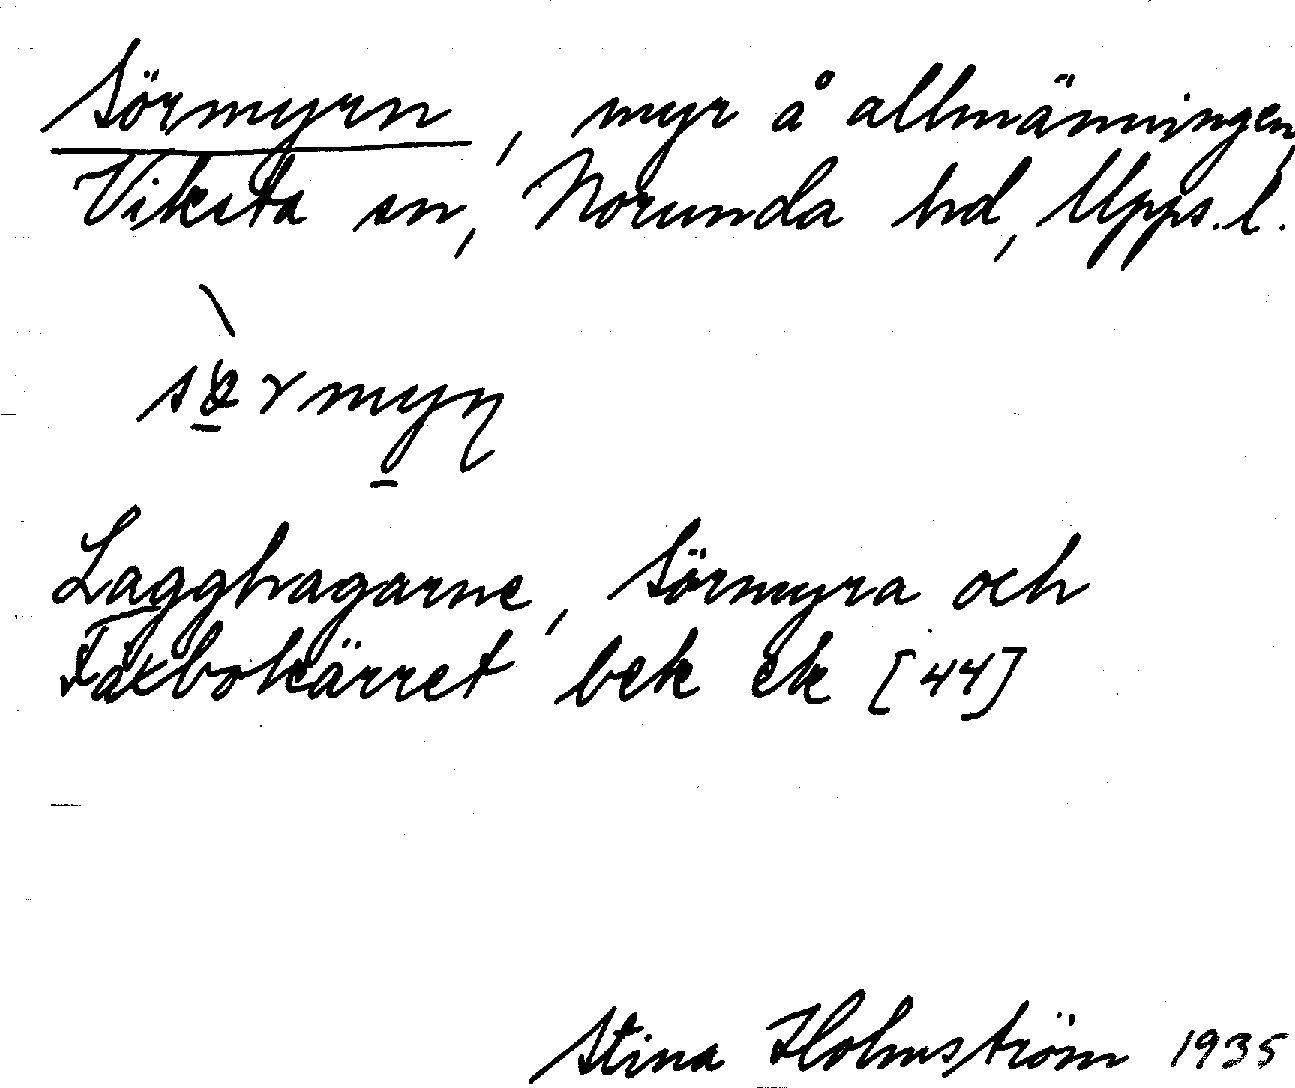 Sörmyrn, myr å allmänningen,
Viksta sn, Norunda hd, Upps.l.
Lagghagarne, Sörmyra och
Faxbokärret bek ek [44]
Stina Holmström 1935